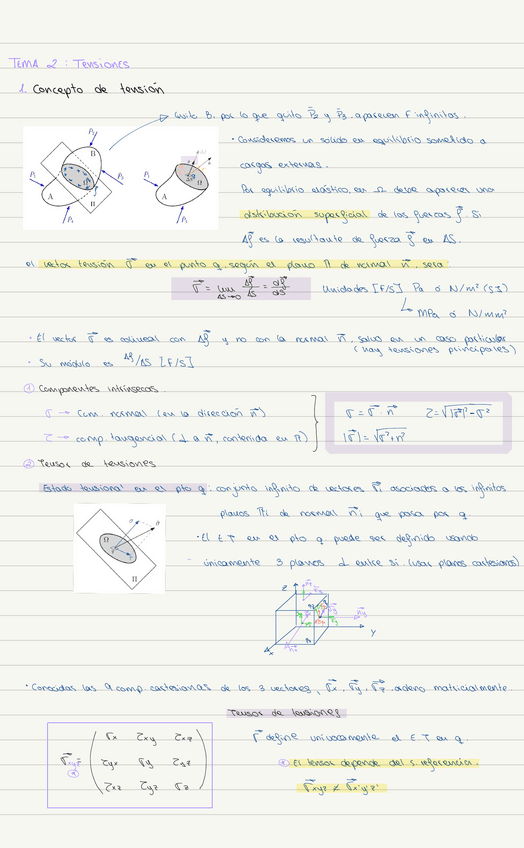 TEMA 2 : Tensiones
1. Concepto de tensión
Quito B, por lo que quito P₂ y P₃, aparecen F infinitas.
· Consideremos un sólido en equilibrio sometido a
cargas externas.
Por equilibrio elástico, en Ω debe aparecer una
distribución superficial de las fuerzas f⃗. Si
Δf⃗ es la resultante de fuerza f⃗ en ΔS.
P₂
B
P₁
P₃
A
Π
P₄
P₁
A
Ω
P₄
el vector tensión σ⃗ en el punto q, según el plano Π de normal n⃗, sera
σ⃗ = lim ΔS→0 Δf⃗/ΔS = df⃗/dS
Unidades [F/S] Pa ó N/m² (SI)
MPa ó N/mm²
· El vector σ⃗ es colineal con Δf⃗ y no con la normal n⃗, salvo en un caso particular
(hay tensiones principales)
· Su módulo es Δf/ΔS [F/S]
① Componentes intrínsecas
σ → Com. normal (en la dirección n⃗)
τ → comp. tangencial (⊥ a n⃗, contenida en Π)
σ = σ⃗ · n⃗
τ = √|σ⃗|² - σ²
② Tensor de tensiones
Estado tensional en el pto q: conjunto infinito de vectores σ⃗i asociados a los infinitos
planos Πi de normal n⃗i que pasa por q
· El E T en el pto q puede ser definido usando
únicamente 3 planos ⊥ entre si. (usar planos cartesianos)
Ω
Π
z
y
x
· Conocidas las 9 comp. cartesianas de los 3 vectores, σ⃗x, σ⃗y, σ⃗z, ordeno matricialmente
Tensor de tensiones
σx τxy τxz
τyx σy τyz
τxz τyz σz
σ⃗ define univocamente el E.T en q.
El tensor depende del s. referencia.
σ⃗xyz ≠ σ⃗x'y'z'